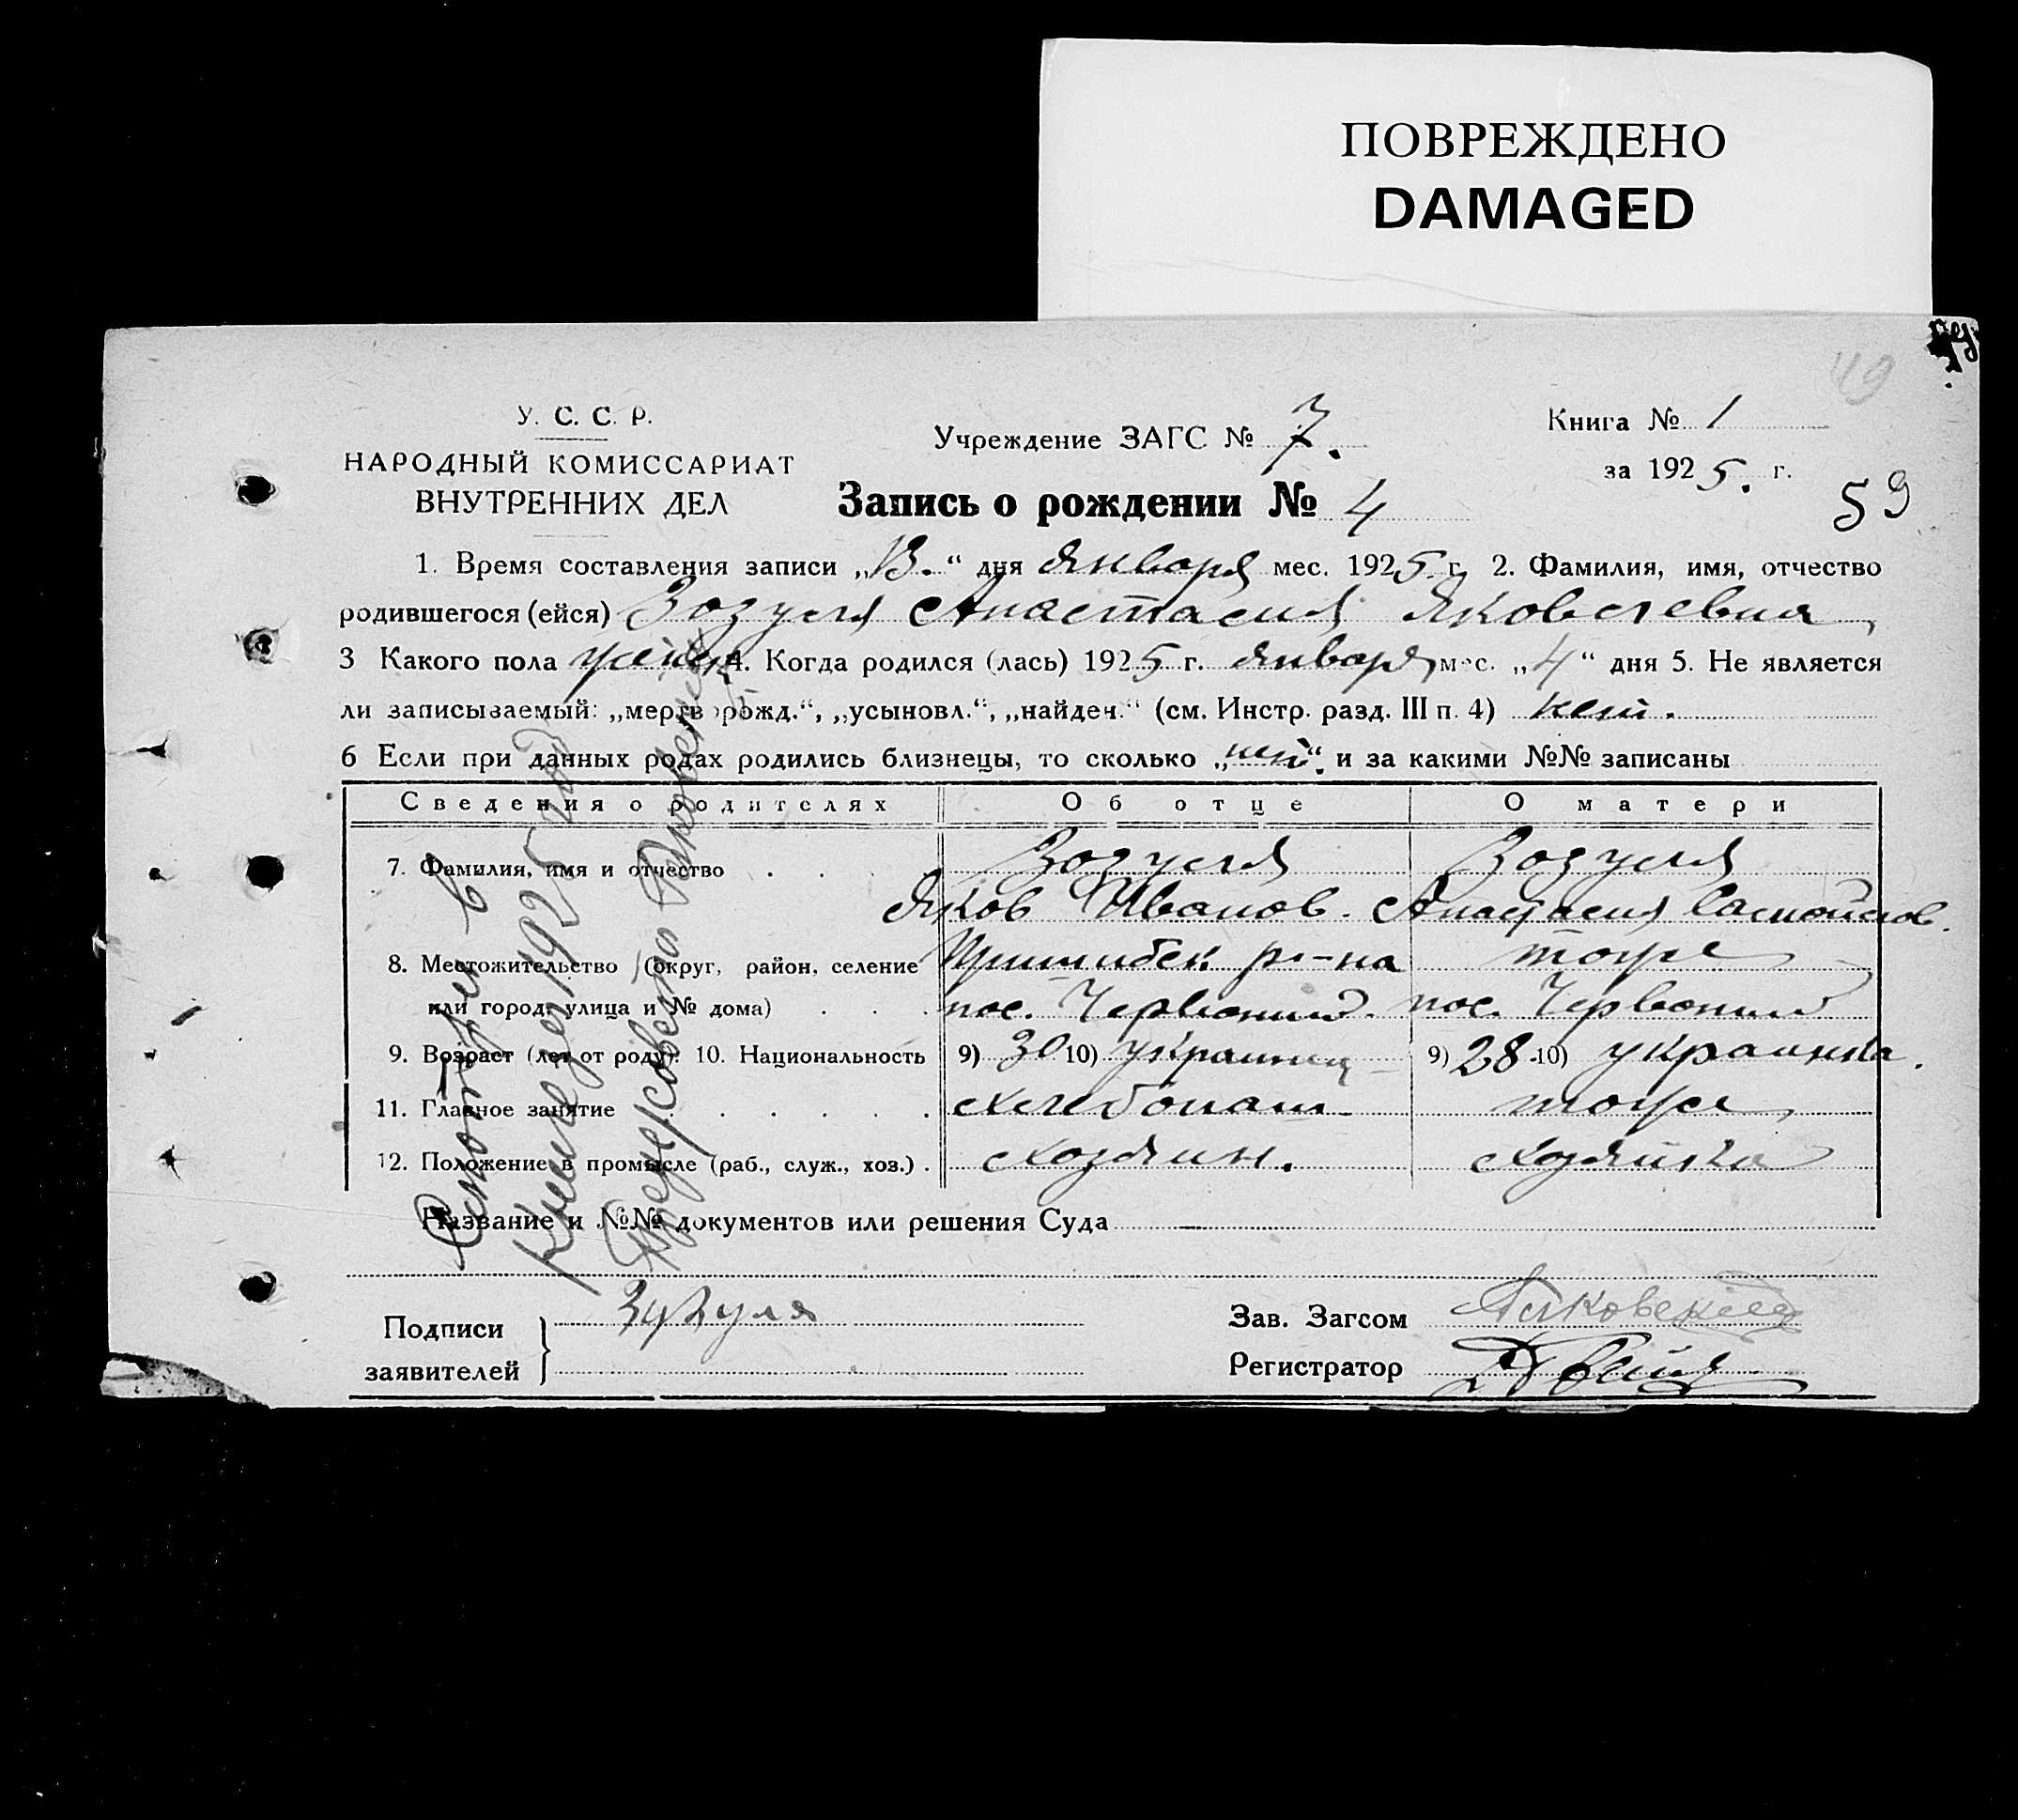 ПОВРЕЖДЕНО
DAMAGED
49
У. С. С. Р.
НАРОДНЫЙ КОМИССАРИАТ
ВНУТРЕННИХ ДЕЛ
Учреждение ЗАГС № 7.
Книга № 1
за 1925. г.
59
Запись о рождении № 4
1. Время составления записи „13.“ дня Января мес. 1925 г. 2. Фамилия, имя, отчество
родившегося (ейся) Зозуля Анастасия Яковлевна
3 Какого пола женск 4. Когда родился (лась) 1925 г. Января мес. „4“ дня 5. Не является
ли записываемый: „мертворожд.“, „усыновл.“, „найден.“ (см. Инстр. разд. III п. 4) нет.
6 Если при данных родах родились близнецы, то сколько „нет“. и за какими №№ записаны
Сведения о родителях Об отце О матери
7. Фамилия, имя и отчество . . . Зозуля Зозуля
Яков Иванов. Анастасия
8. Местожительство (округ, район, селение Пришибск. р-на тоже
или город, улица и № дома) . . . пос. Червоний. пос. Червоний
9. Возраст (лет от роду). 10. Национальность 9) 30 10) украинец 9) 28 10) украинка.
11. Главное занятие . . . . . . хлебопаш. тоже
12. Положение в промысле (раб., служ., хоз.) . хозяин. хозяйка
Название и №№ документов или решения Суда
Подписи
заявителей
Зузуля
Зав. Загсом
Регистратор
в
Книге за 1925 год